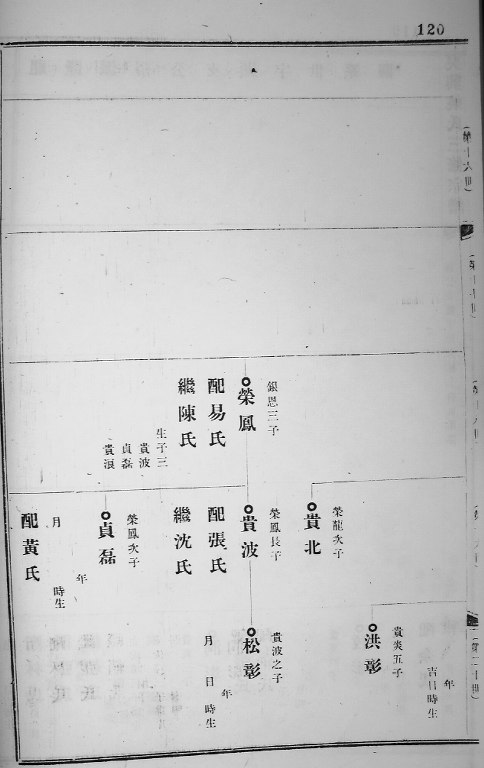 120
(第十六世)
榮鳳
銀恩三子
配易氏
繼陳氏
生子三
貴波
貞磊
貴浪
貴北
榮龍次子
貴波
榮鳳長子
配張氏
繼沈氏
貞磊
榮鳳次子
年
月
時生
配黃氏
洪彰
貴炎五子
年
吉日時生
松彰
貴波之子
年
月 日時生